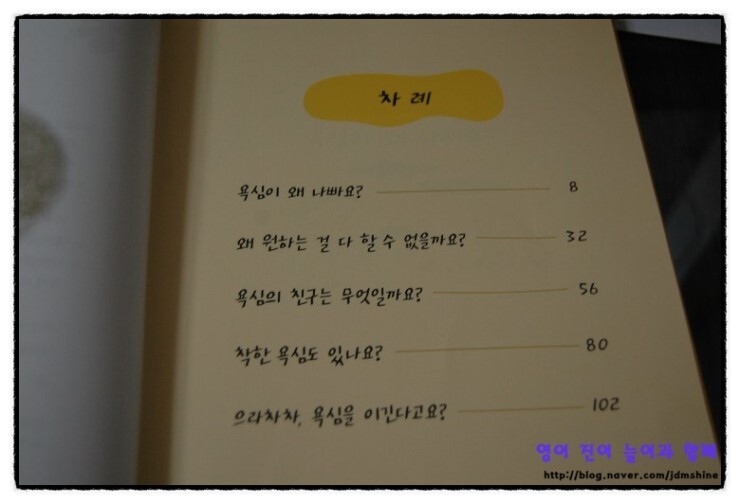 차 례
욕심이 왜 나빠요? 8
왜 원하는 걸 다 할 수 없을까요? 32
욕심의 친구는 무엇일까요? 56
착한 욕심도 있나요? 80
으라차차, 욕심을 이긴다고요? 102
영어 진이 놀이과 함께
http://blog.naver.com/jdmshine